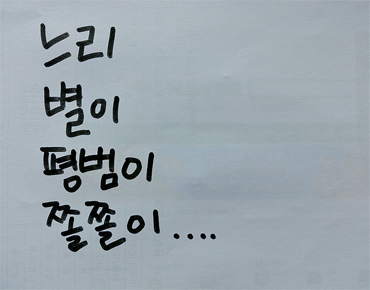 느리
별이
평범이
쫄쫄이....